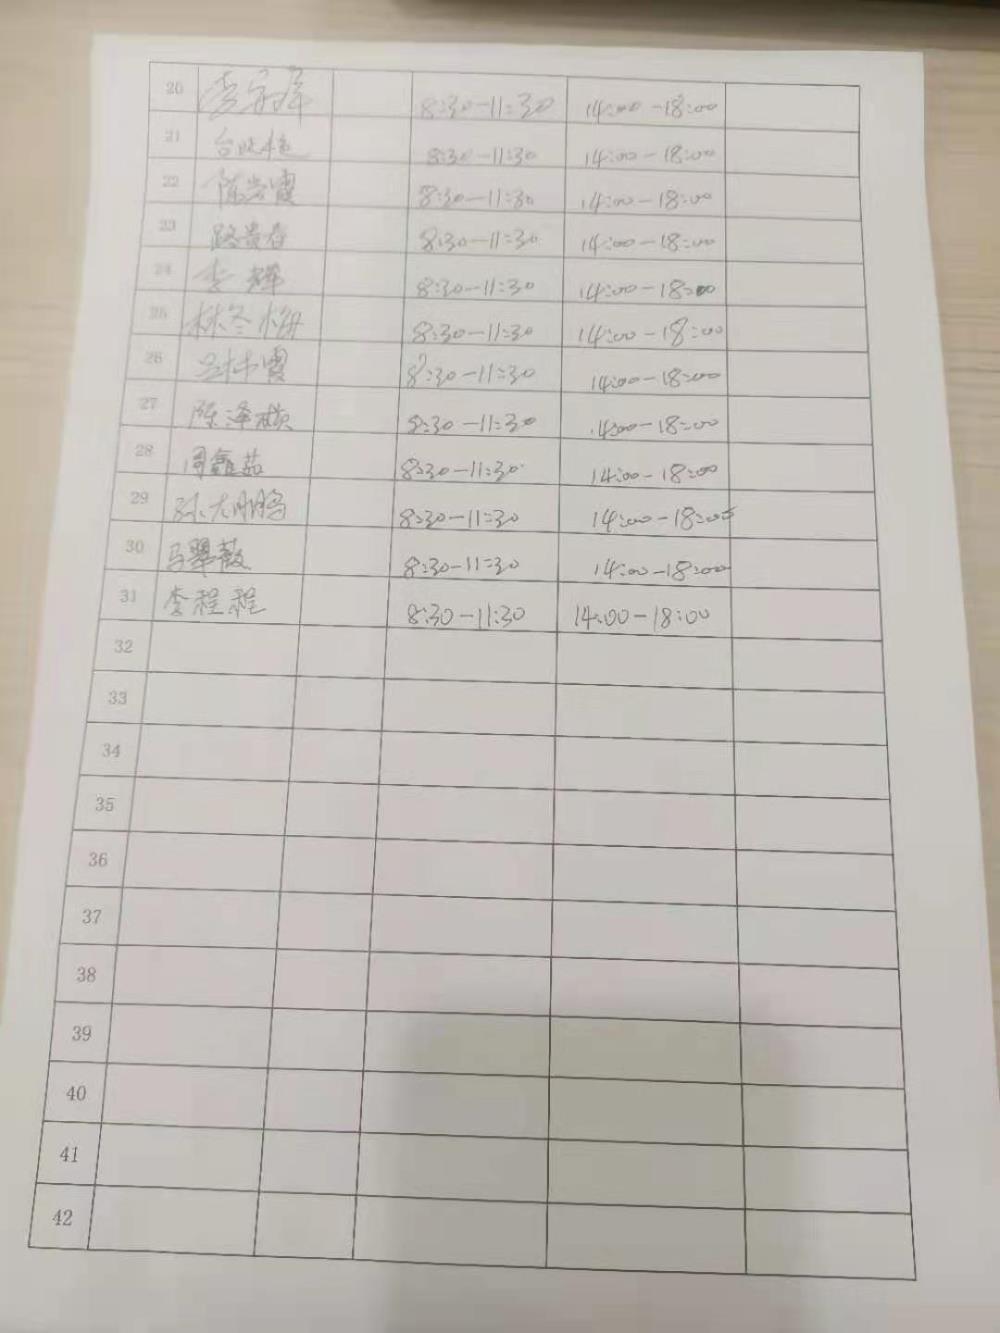 20 李 8:30-11:30 14:00-18:00
21 8:30-11:30 14:00-18:00
22 陈 霞 8:30-11:30 14:00-18:00
23 路贵春 8:30-11:30 14:00-18:00
24 李辉 8:30-11:30 14:00-18:00
25 林冬梅 8:30-11:30 14:00-18:00
26 霞 8:30-11:30 14:00-18:00
27 陈泽 8:30-11:30 14:00-18:00
28 周鑫茹 8:30-11:30 14:00-18:00
29 孙大鹏 8:30-11:30 14:00-18:00
30 马翠 8:30-11:30 14:00-18:00
31 李程程 8:30-11:30 14:00-18:00
32
33
34
35
36
37
38
39
40
41
42